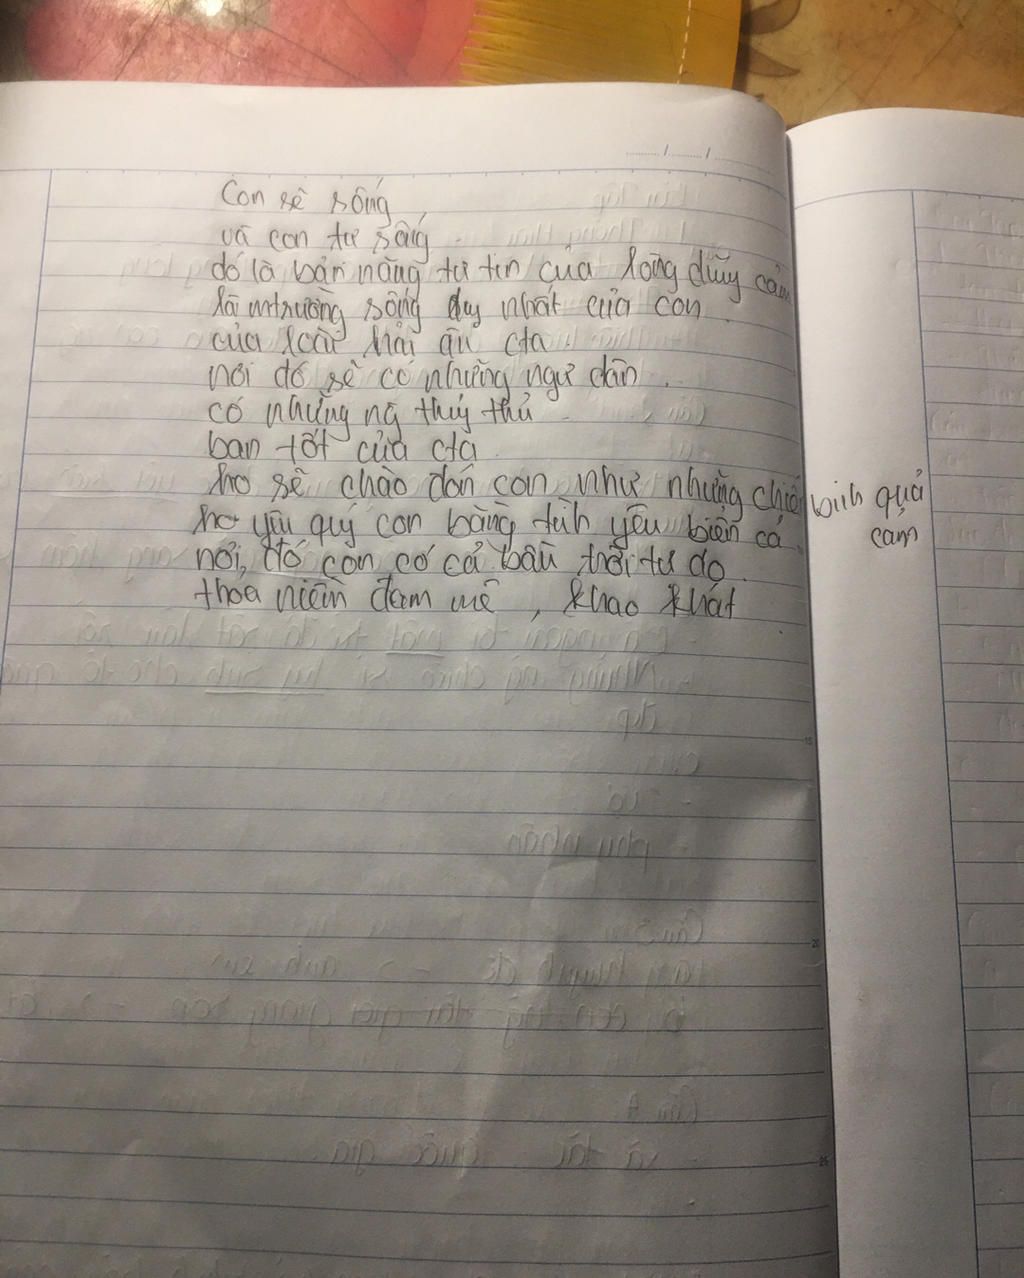 Con sẽ sống
và con tự sống
đó là bản năng tự tin của lòng dũng cảm
là mtrường sống duy nhất của con.
của loài hải âu cta.
nơi đó sẽ có những ngư dân.
có những ng thủy thủ
bạn tốt của cta.
họ sẽ chào đón con như những chiến binh quả cảm
họ yêu quý con bằng tình yêu biển cả.
nơi đó con có cả bầu trời tự do.
thỏa niềm đam mê, khao khát